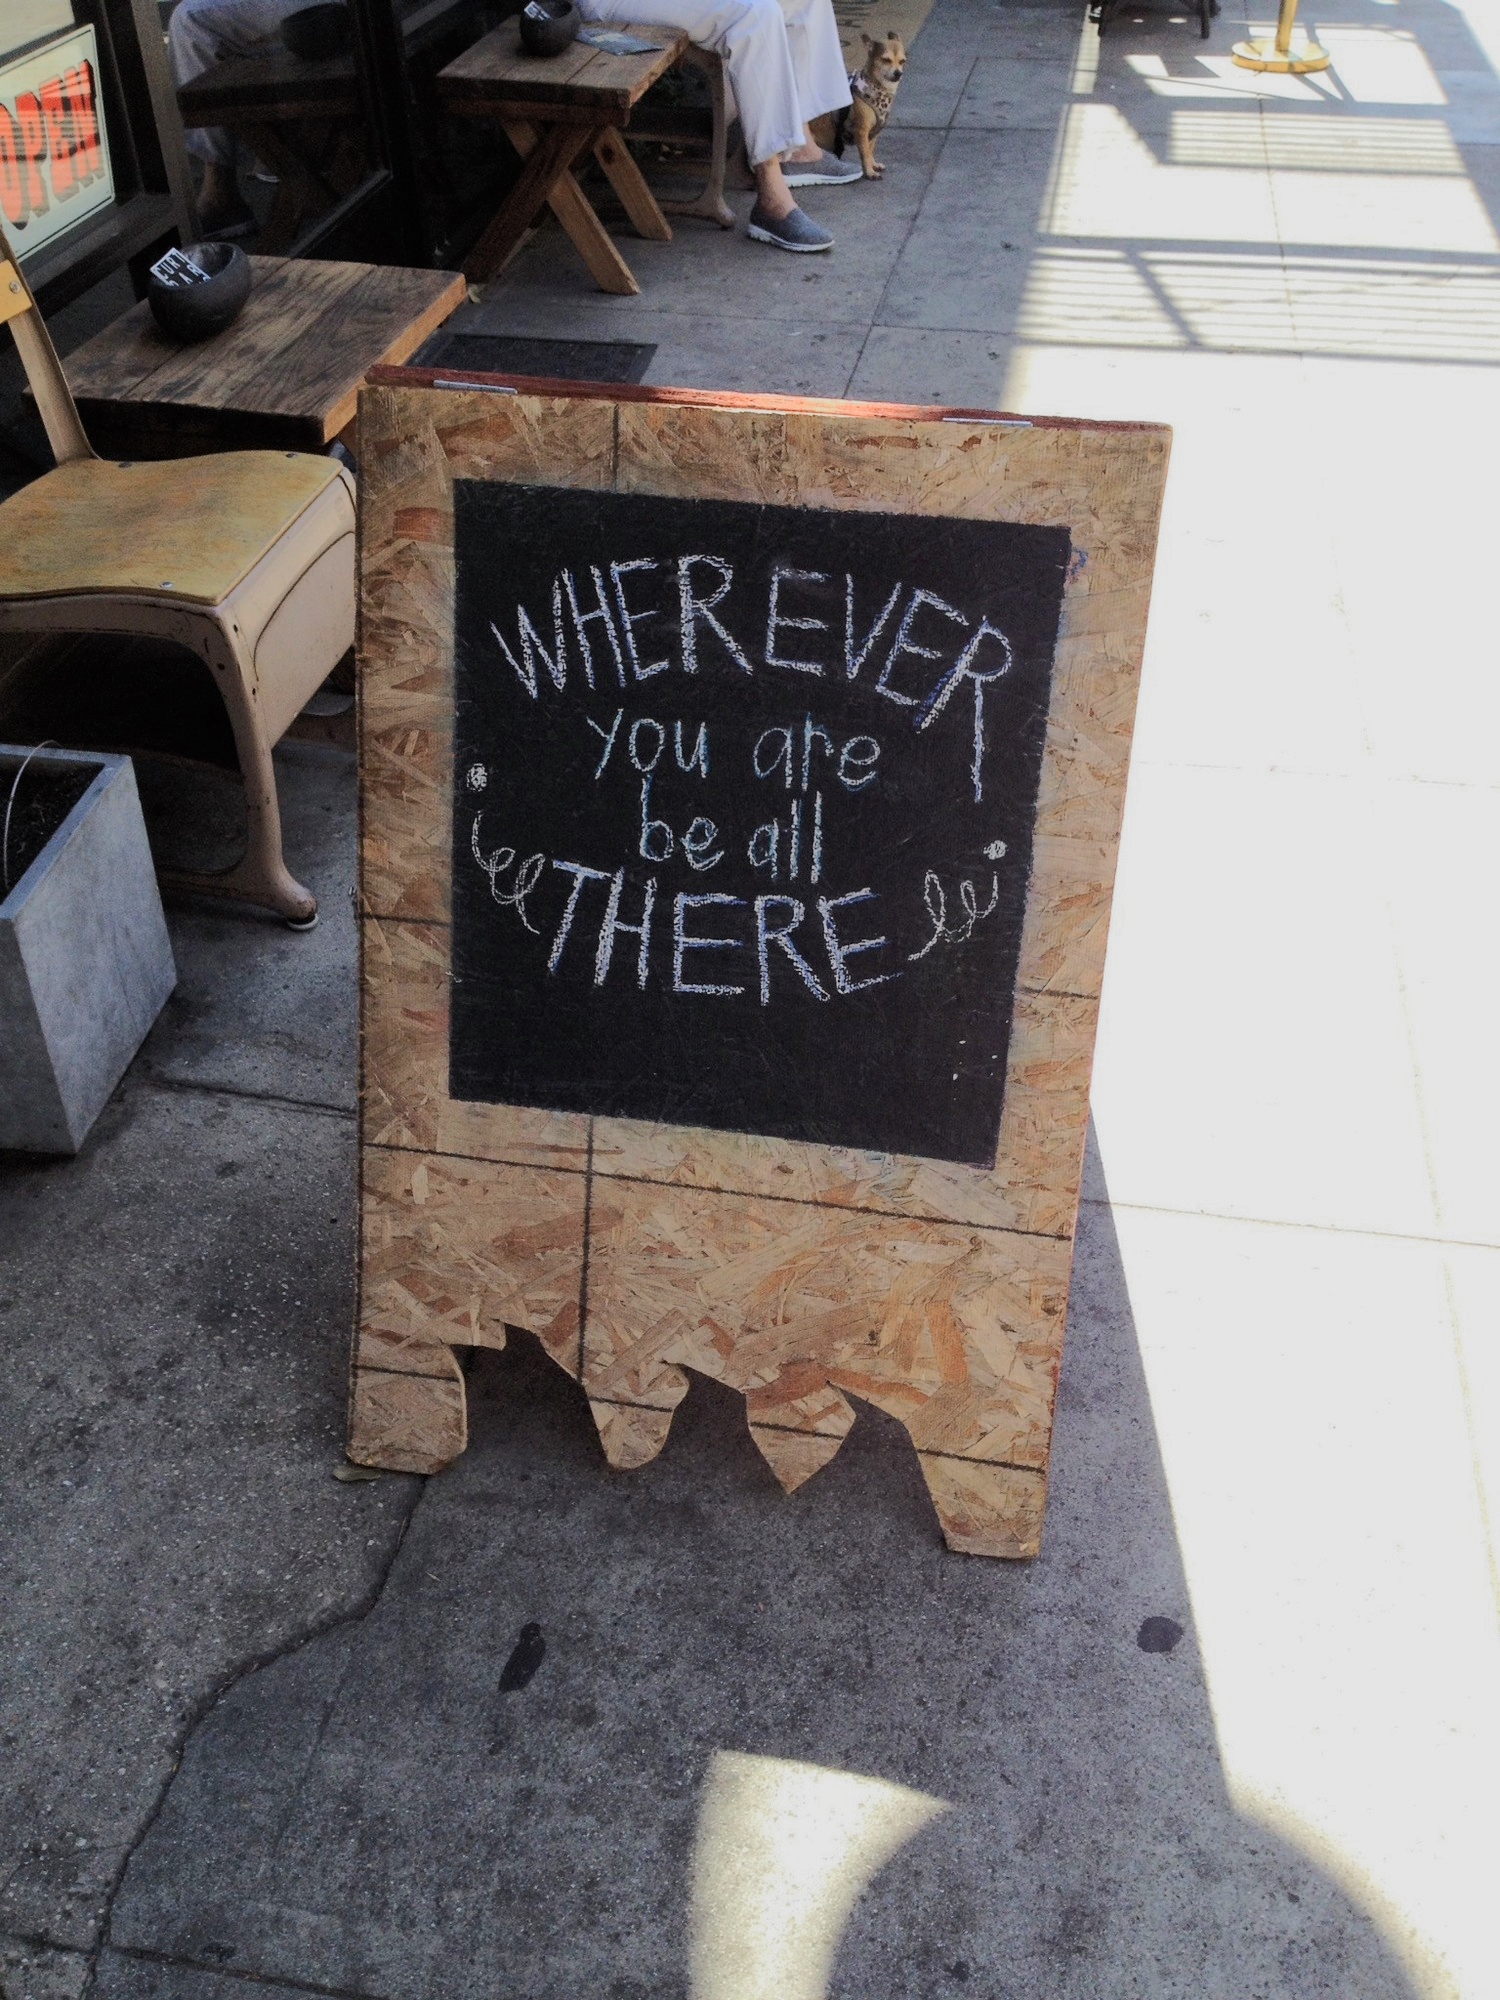 OPEN
WHEREVER
you are
be all
THERE